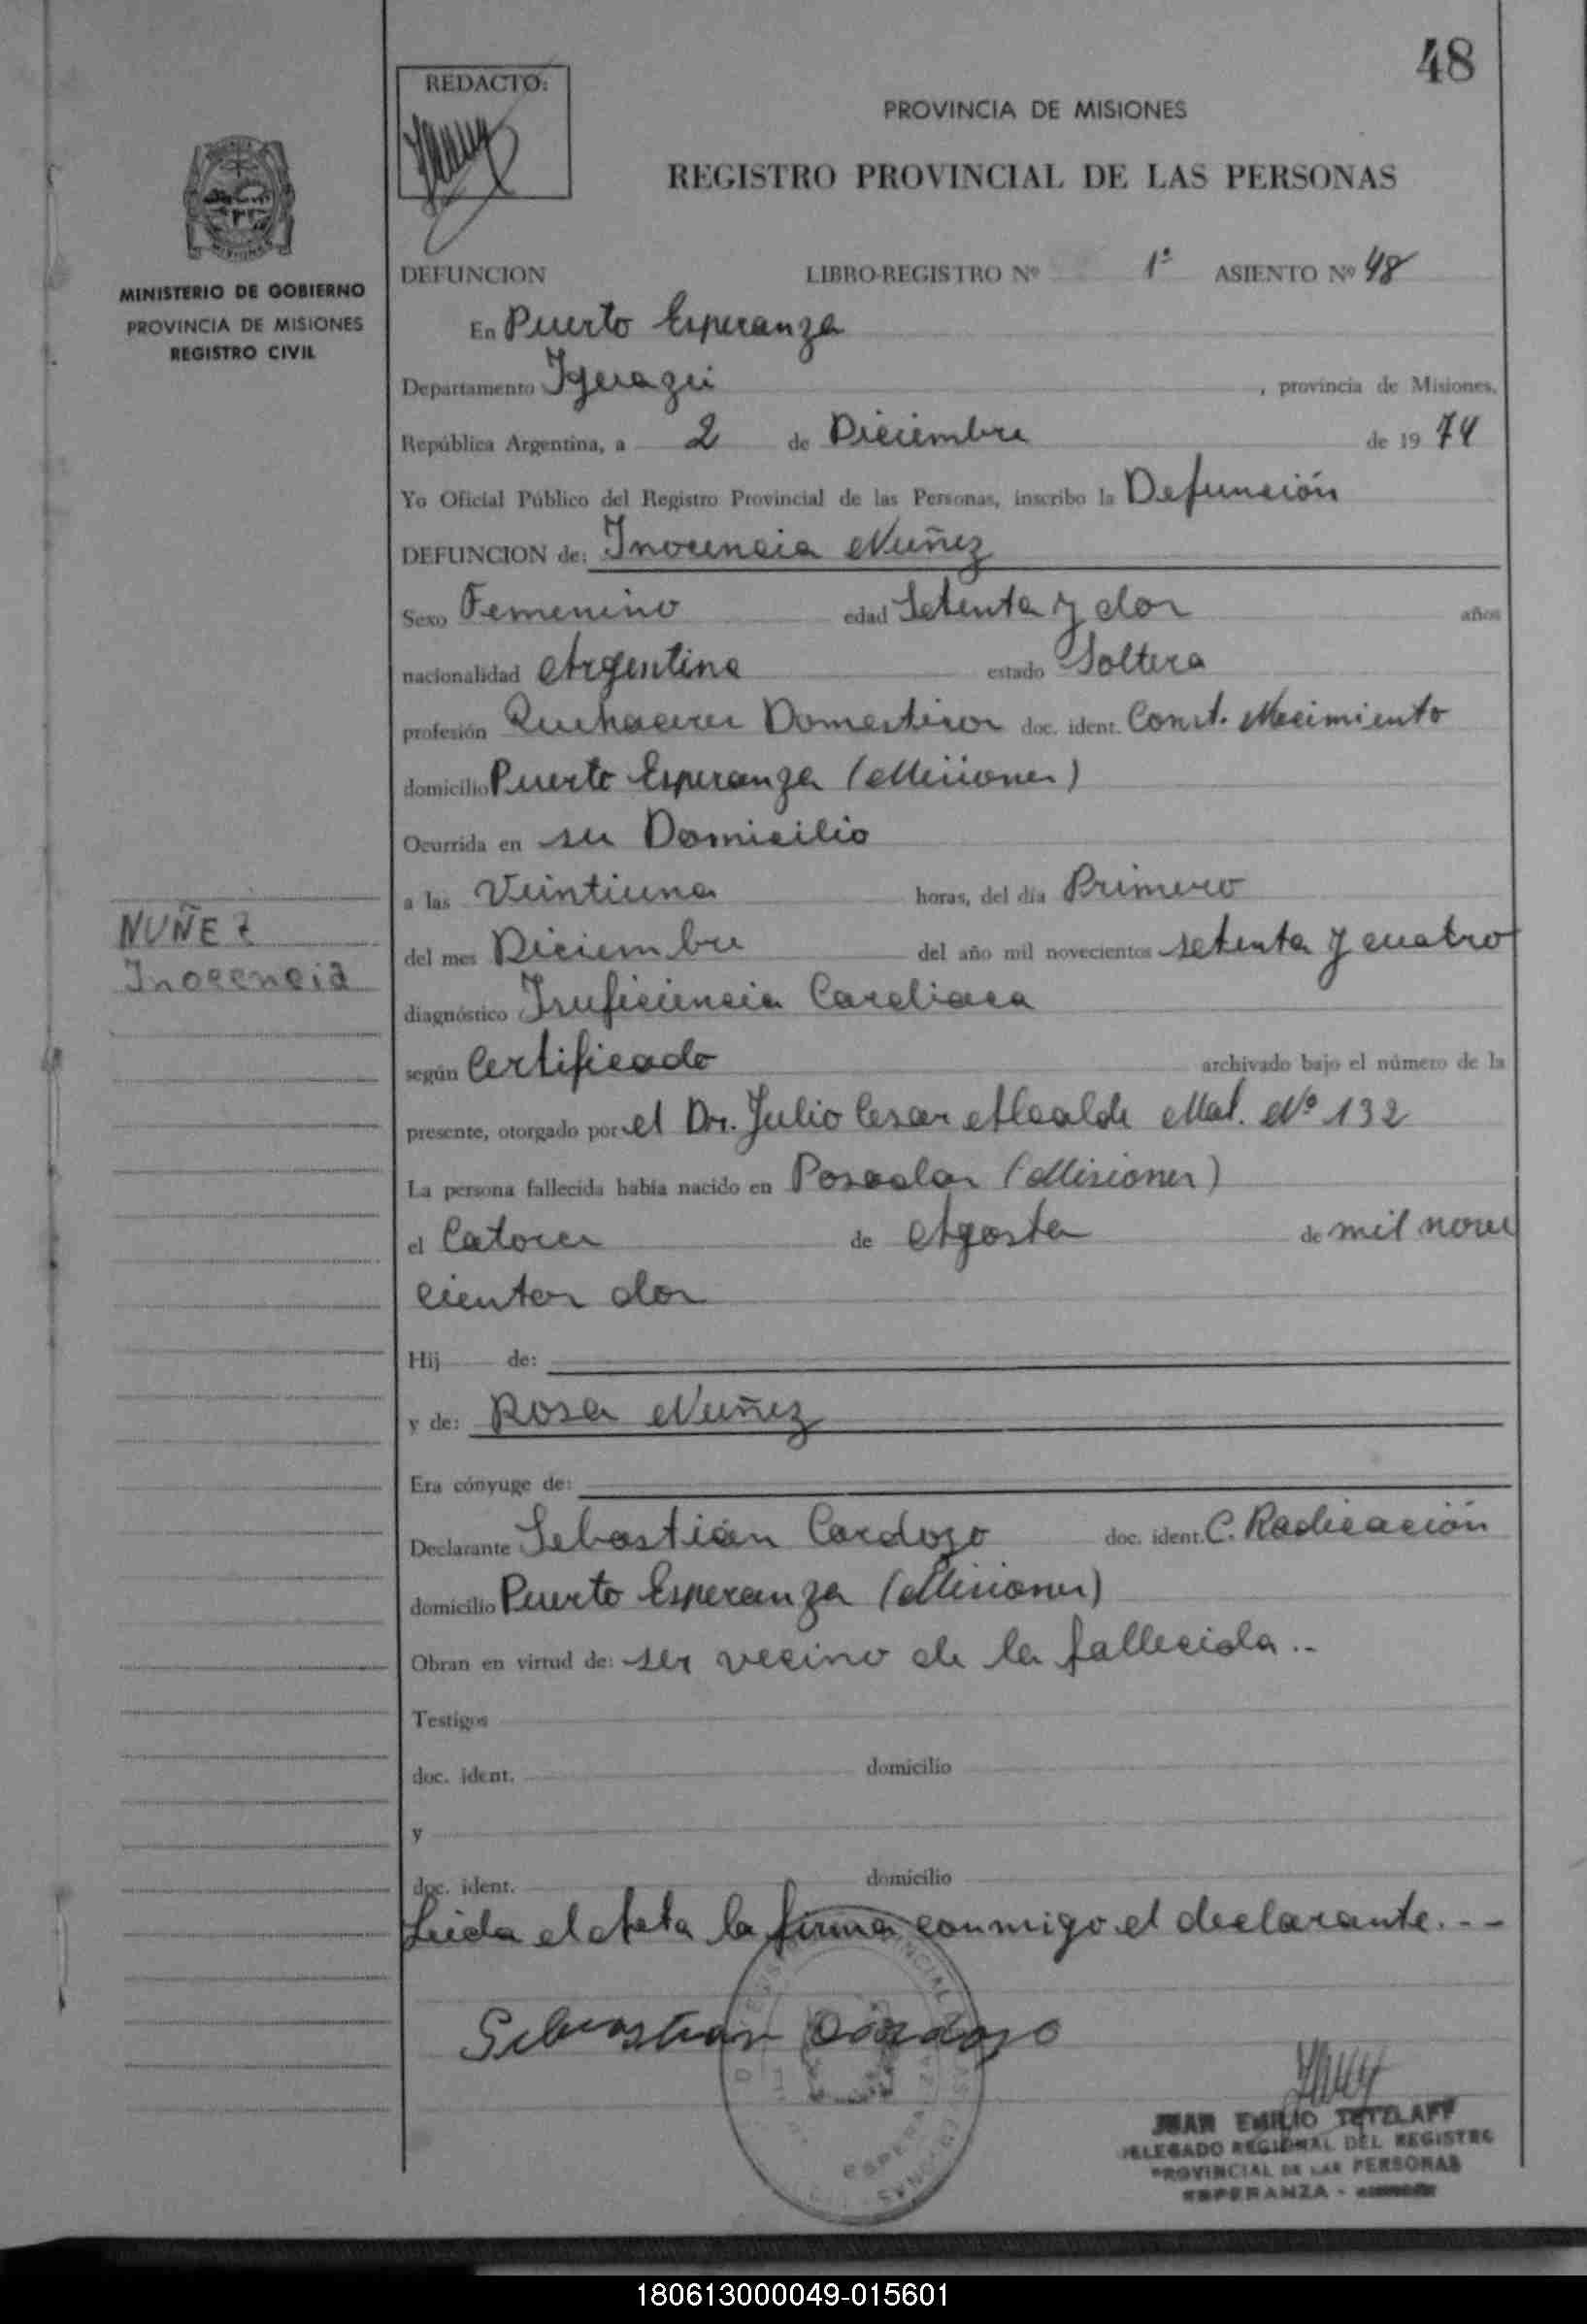 48
REDACTO:
PROVINCIA DE MISIONES
REGISTRO PROVINCIAL DE LAS PERSONAS
MINISTERIO DE GOBIERNO
PROVINCIA DE MISIONES
REGISTRO CIVIL
DEFUNCION LIBRO-REGISTRO Nº 1º ASIENTO Nº 48
En Puerto Esperanza
Departamento Iguazú, provincia de Misiones.
República Argentina, a 2 de Diciembre de 1974
Yo Oficial Público del Registro Provincial de las Personas, inscribo la Defunción
DEFUNCION de: Inocencia Nuñez
Sexo Femenino edad Setenta y dos años
nacionalidad Argentina estado Soltera
profesión Quehaceres Domesticos doc. ident. Const. Nacimiento
domicilio Puerto Esperanza (Misiones)
Ocurrida en su Domicilio
a las Veintiuna horas, del día Primero
NUÑEZ
Inocencia
del mes Diciembre del año mil novecientos setenta y cuatro
diagnóstico Insuficiencia Cardiaca
según Certificado archivado bajo el número de la
presente, otorgado por el Dr. Julio Cesar Alcalde Mat. Nº 132
La persona fallecida había nacido en Posadas (Misiones)
el Catorce de Agosto de mil nove
cientos dos
Hij de:
y de: Rosa Nuñez
Era cónyuge de:
Declarante Sebastián Cardozo doc. ident. C. Radicación
domicilio Puerto Esperanza (Misiones)
Obran en virtud de: ser vecino de la fallecida..
Testigos
doc. ident. domicilio
y
doc. ident. domicilio
Leida el Acta la firma conmigo el declarante.--
Sebastian Cardozo
JUAN EMILIO TETZLAFF
DELEGADO REGIONAL DEL REGISTRO
PROVINCIAL DE LAS PERSONAS
ESPERANZA -
180613000049-015601